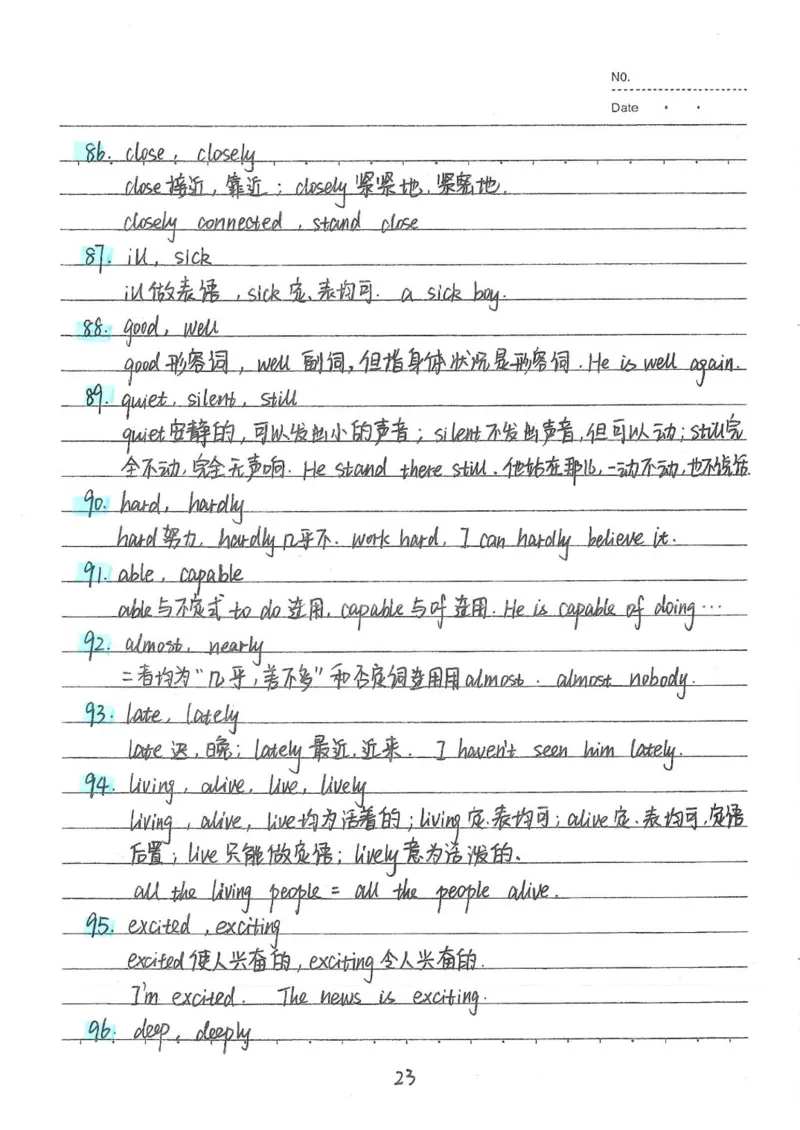 NO.
Date
86. close, closely
close 接近，靠近；closely 紧紧地，紧密地.
closely connected, stand close
87. ill, sick
ill 做表语，sick 定、表均可. a sick boy.
88. good, well
good 形容词，well 副词，但指身体状况是形容词. He is well again.
89. quiet, silent, still
quiet 安静的，可以发出小的声音；silent 不发出声音，但可以动；still 完
全不动，完全无声响. He stand there still. 他站在那儿，一动不动，也不说话.
90. hard, hardly
hard 努力，hardly 几乎不. work hard, I can hardly believe it.
91. able, capable
able 与不定式 to do 连用，capable 与 of 连用. He is capable of doing…
92. almost, nearly
二者均为“几乎，差不多”和否定词连用用 almost. almost nobody.
93. late, lately
late 迟，晚；lately 最近，近来. I haven't seen him lately.
94. living, alive, live, lively
living, alive, live 均为活着的；living 定、表均可；alive 定、表均可，定语
后置；live 只能做定语；lively 意为活泼的.
all the living people = all the people alive.
95. excited, exciting
excited 使人兴奋的，exciting 令人兴奋的.
I'm excited. The news is exciting.
96. deep, deeply
23